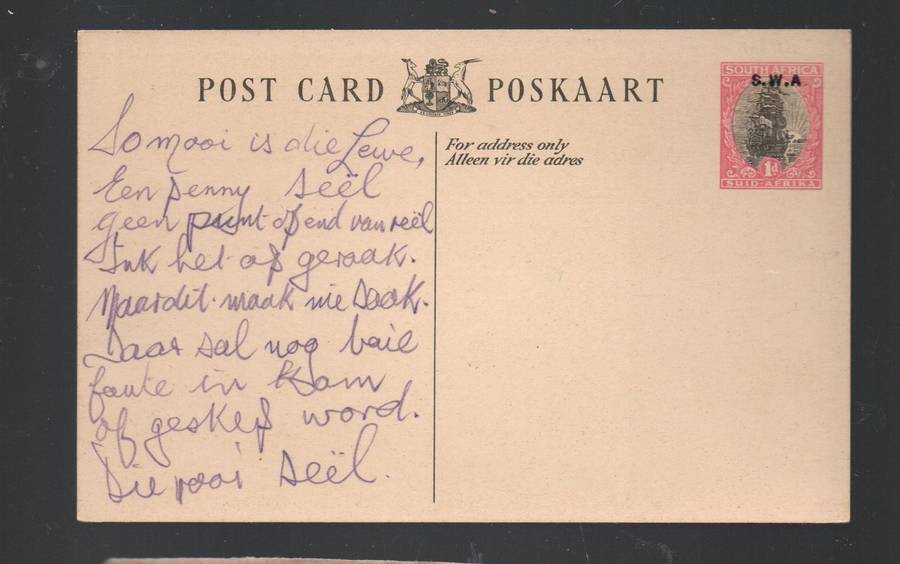 POST CARD POSKAART
SOUTH AFRICA
S.W.A
1d
SUID-AFRIKA
For address only
Alleen vir die adres
So mooi is die Lewe,
Een penny seël
geen punt of end van reël
Ink het op geraak.
Maar dit maak nie saak.
Daar sal nog baie
foute in kom
of geskep word.
Die rooi seël.